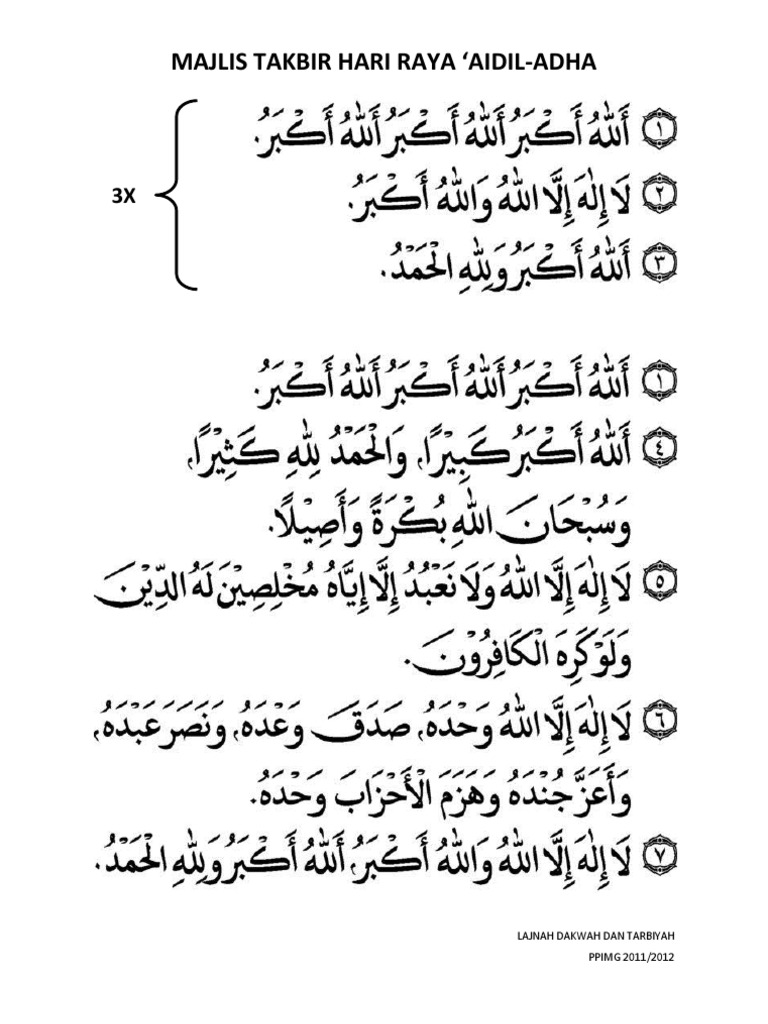 MAJLIS TAKBIR HARI RAYA ‘AIDIL-ADHA
١ أَللهُ أَكْبَرُ أَللهُ أَكْبَرُ أَللهُ أَكْبَرُ.
3X
٢ لَا إِلٰهَ إِلَّا اللهُ وَاللهُ أَكْبَرُ.
٣ أَللهُ أَكْبَرُ وَلِلّٰهِ الْحَمْدُ.
١ أَللهُ أَكْبَرُ أَللهُ أَكْبَرُ أَللهُ أَكْبَرُ.
٤ أَللهُ أَكْبَرُ كَبِيْرًا، وَالْحَمْدُ لِلّٰهِ كَثِيْرًا،
وَسُبْحَانَ اللهِ بُكْرَةً وَأَصِيْلًا.
٥ لَا إِلٰهَ إِلَّا اللهُ وَلَا نَعْبُدُ إِلَّا إِيَّاهُ مُخْلِصِيْنَ لَهُ الدِّيْنَ
وَلَوْ كَرِهَ الْكَافِرُوْنَ.
٦ لَا إِلٰهَ إِلَّا اللهُ وَحْدَهُ، صَدَقَ وَعْدَهُ، وَنَصَرَ عَبْدَهُ،
وَأَعَزَّ جُنْدَهُ وَهَزَمَ الْأَحْزَابَ وَحْدَهُ.
٧ لَا إِلٰهَ إِلَّا اللهُ وَاللهُ أَكْبَرُ، أَللهُ أَكْبَرُ وَلِلّٰهِ الْحَمْدُ.
LAJNAH DAKWAH DAN TARBIYAH
PPIMG 2011/2012